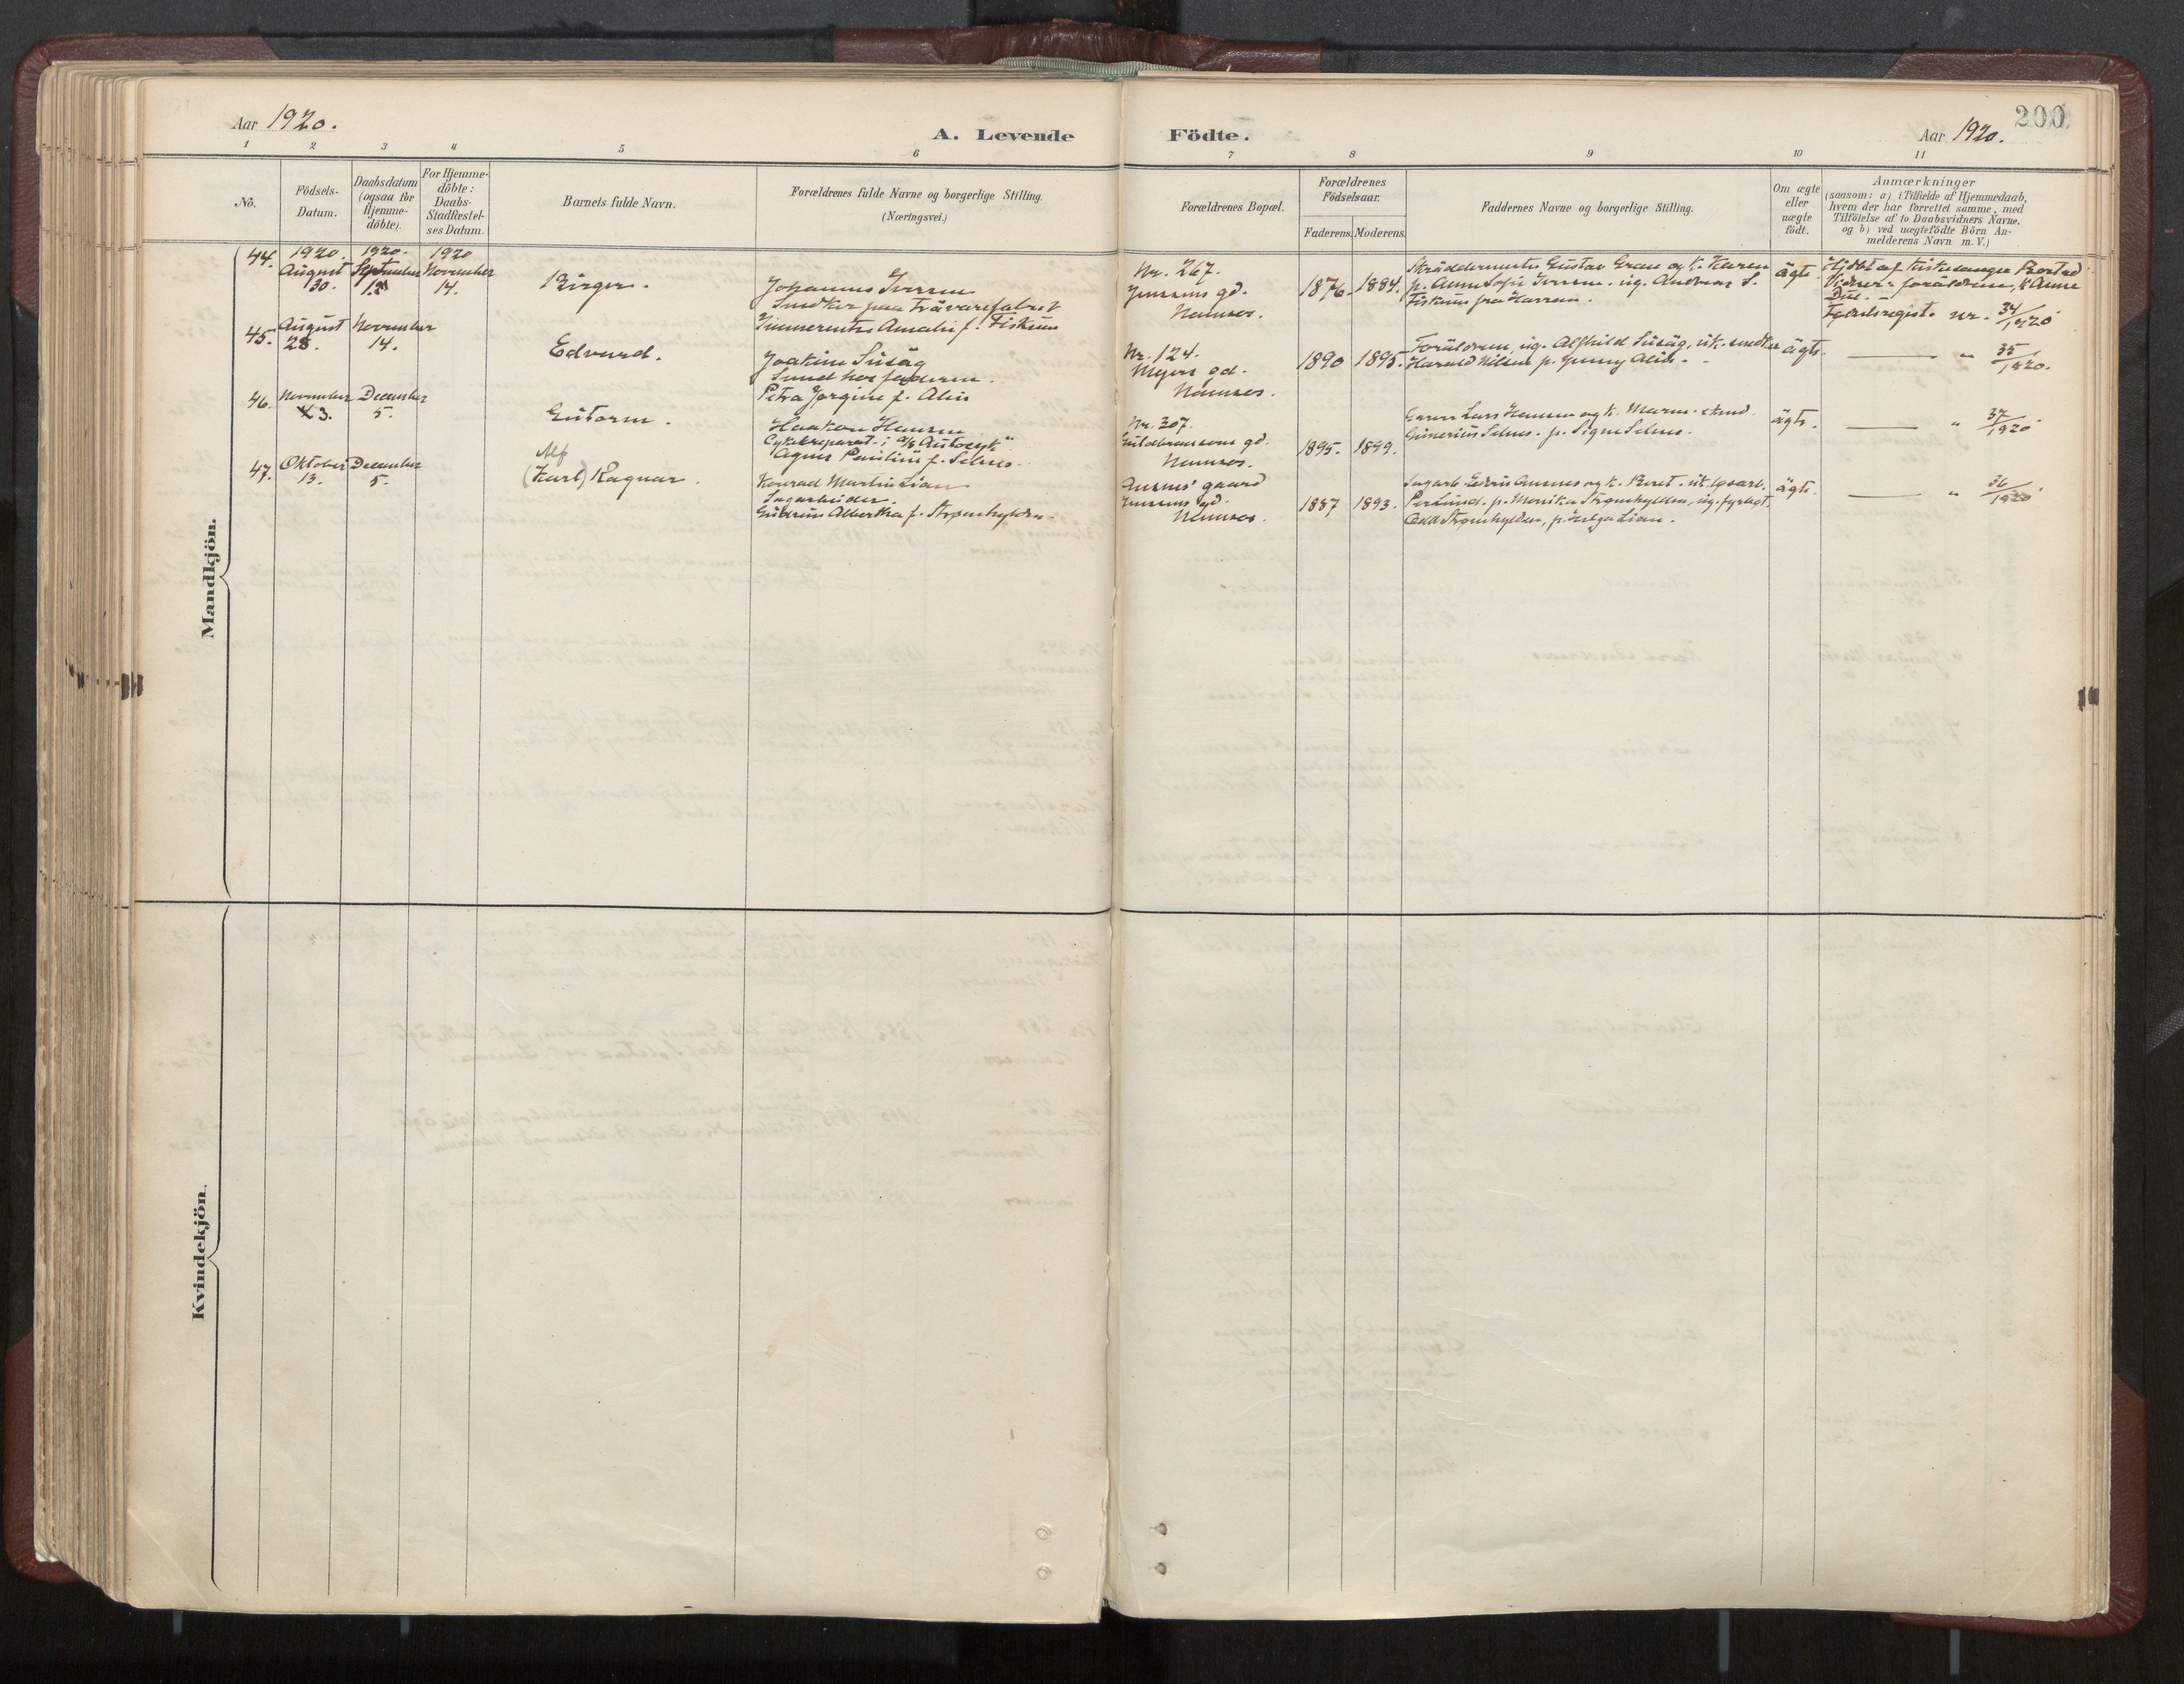 200
Aar 1920.
A. Levende Födte.
Aar 1920.
1 2 3 4 5 6 7 8 9 10 11
No.
Födsels-
Datum.
Daabsdatum
(ogsaa for
Hjemme-
döbte).
For Hjemme-
döbte:
Daabs-
Stadfestel-
ses Datum.
Barnets fulde Navn.
Forældrenes fulde Navne og borgerlige Stilling.
(Næringsvei.)
Forældrenes Bopæl.
Forældrenes
Födselsaar.
Faderens. Moderens.
Faddernes Navne og borgerlige Stilling.
Om ægte
eller
uægte
födt.
Anmærkninger
(saasom: a) i Tilfælde af Hjemmedaab,
hvem der har forrettet samme, med
Tilföielse af to Daabsvidners Navne,
og b) ved uægtefödte Börn An-
melderens Navn m. V.)
Mandkjön.
44.
1920.
August
30.
1920.
September
12
1920
November
14.
Birger.
Johannes Iversen
Snedker paa Trävarefabrik
Amalie f. Fiskum
Nr. 267.
Jensens gd.
Namsos.
1876. 1884.
Skräddermester Gustav Gran og k. Karen
p. Anna Sofie Iversen. ug. Andreas S.
Fiskum fra Harran.
ägte.
Hjdbt af Kirkesanger Rostad
Vidner: foräldrene, k Anna
Due. -
Fødselsregist. nr. 34/1920
45.
August
28.
November
14.
Edvard.
Joakim Süsäg
Smed hos faderen.
Petra Jørgine f. Alin
Nr. 124.
Myers gd.
Namsos.
1890 1895.
Foräldrene, ug. Alfhild Süsäg, uk. snedker
Harald Nilsen p. Jenny Alin. -
ägte.
" 35/1920.
46.
November
3.
December
5.
Gutorm.
Haakon Hansen
Cykkelreparat. i A/S "Autocyk"
Agnes Pauline f. Selnes.
Nr. 307.
gd.
Namsos.
1895. 1899.
Lars Hansen og k. Maren.
Selnes. p. Signe Selnes.
ägte.
" 37/1920
47.
Oktober
13.
December
5.
Alf
(Karl) Ragnar.
Konrad Martin Lian
Sagarbeider.
Albertha f. Strømhylden.
Ausnes' gaard
Jensens gd.
Namsos.
1887 1893.
Sagarb. Edvin Ausnes og k. Beret. uk. lpsarb.
Per Lund. p. Monika Strømhylden, ug. fyrbøt.
Odd Strømhylden, p. Helga Lian.
ägte.
" 36/1920
Kvindekjön.